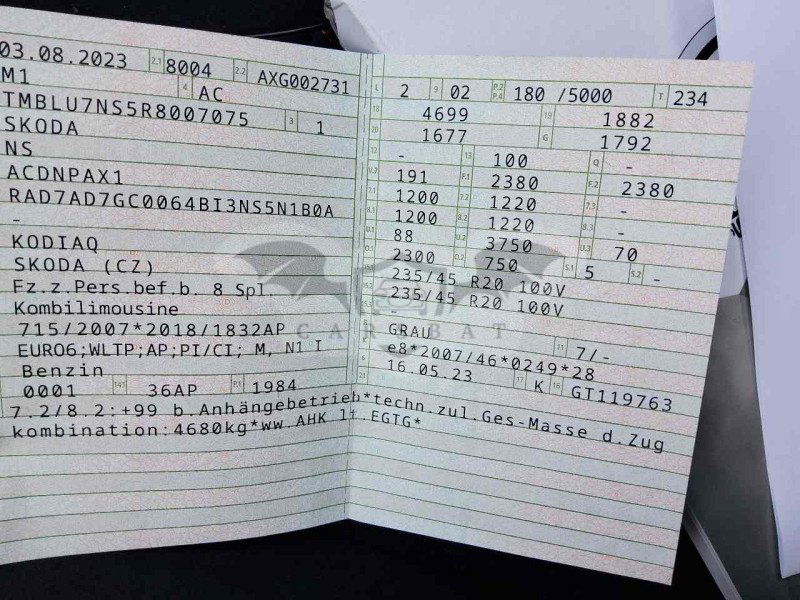 03.08.2023 2.1 8004 2.2 AXG002731
M1 4 AC
TMBLU7NS5R8007075 3 1
SKODA
NS
ACDNPAX1
RAD7AD7GC0064BI3NS5N1B0A
-
KODIAQ
SKODA (CZ)
Fz.z.Pers.bef.b. 8 Spl.
Kombilimousine
715/2007*2018/1832AP
EURO6;WLTP;AP;PI/CI; M, N1 I
Benzin
0001 14.1 36AP P.1 1984
L 2 9 02 P.2 P.4 180 /5000 T 234
18 4699 19 1882
20 1677 G 1792
12 - 13 100 Q -
V.7 191 F.1 2380 F.2 2380
7.1 1200 7.2 1220 7.3 -
8.1 1200 8.2 1220 8.3 -
U.1 88 U.2 3750 U.3 70
O.1 2300 O.2 750 S.1 5 S.2 -
235/45 R20 100V
235/45 R20 100V
-
GRAU 11 7/-
e8*2007/46*0249*28
6 16.05.23 17 K 16 GT119763
21
7.2/8.2:+99 b.Anhängebetrieb*techn.zul.Ges-Masse d.Zug
kombination:4680kg*ww.AHK lt.EGTG*
CAR BAT